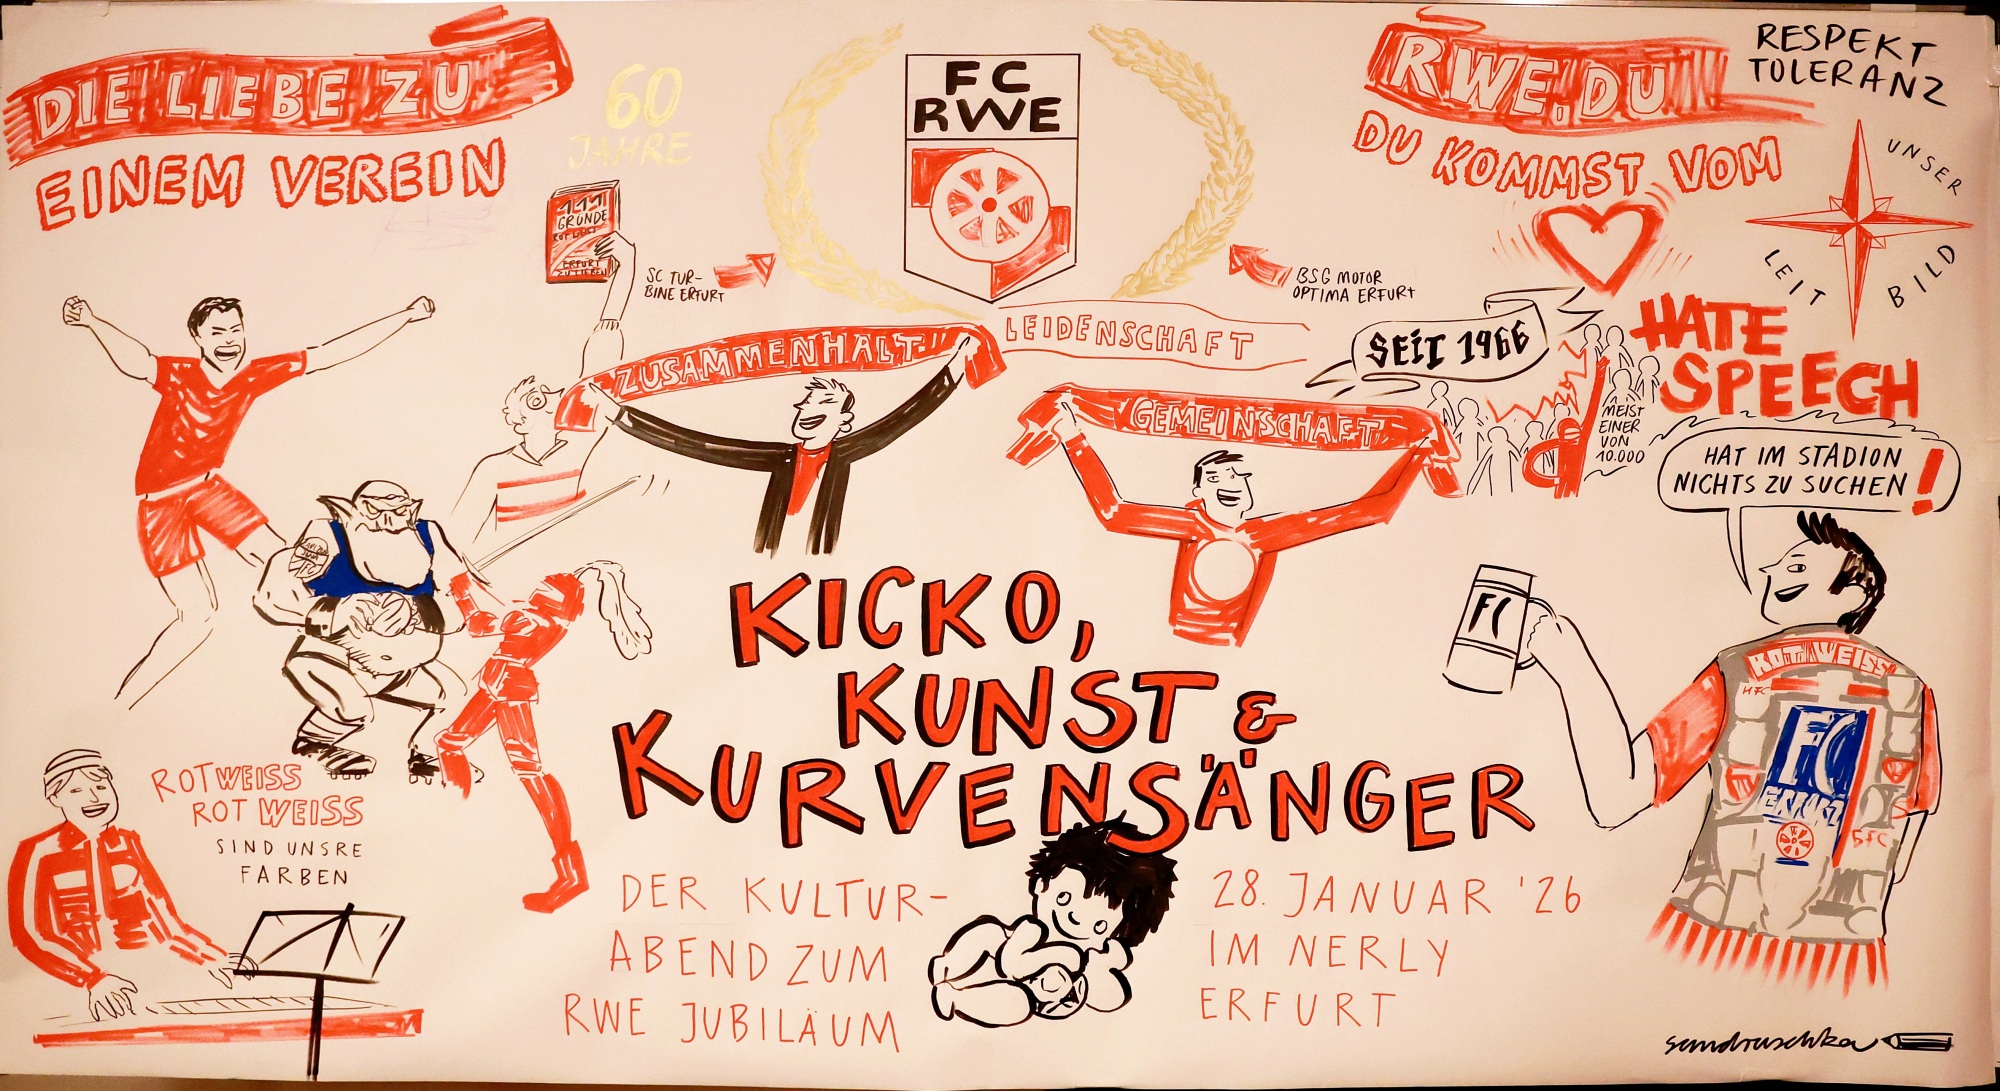 DIE LIEBE ZU
EINEM VEREIN
60
JAHRE
111
GRÜNDE
ROT WEISS
ERFURT
ZU LIEBEN
SC TUR-
BINE ERFURT
FC
RWE
BSG MOTOR
OPTIMA ERFURT
RWE.DU
DU KOMMST VOM
RESPEKT
TOLERANZ
UNSER
LEIT
BILD
ZUSAMMENHALT
LEIDENSCHAFT
GEMEINSCHAFT
SEIT 1966
MEIST
EINER
VON
10.000
HATE
SPEECH
HAT IM STADION
NICHTS ZU SUCHEN!
FC
ROT WEISS
HFC
FC
BFC
KICKO,
KUNST &
KURVENSÄNGER
ROTWEISS
ROT WEISS
SIND UNSRE
FARBEN
DER KULTUR-
ABEND ZUM
RWE JUBILÄUM
28. JANUAR '26
IM NERLY
ERFURT
sandruschka